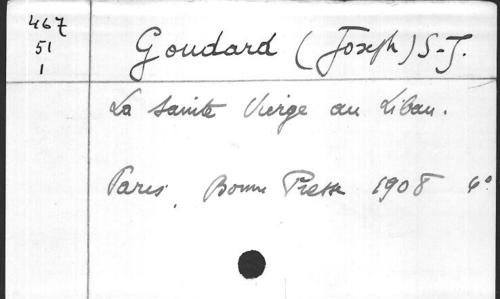 467
51
1
Goudard (Joseph) S-J.
La Sainte Vierge au Liban.
Paris, Bonne Presse 1908 4°